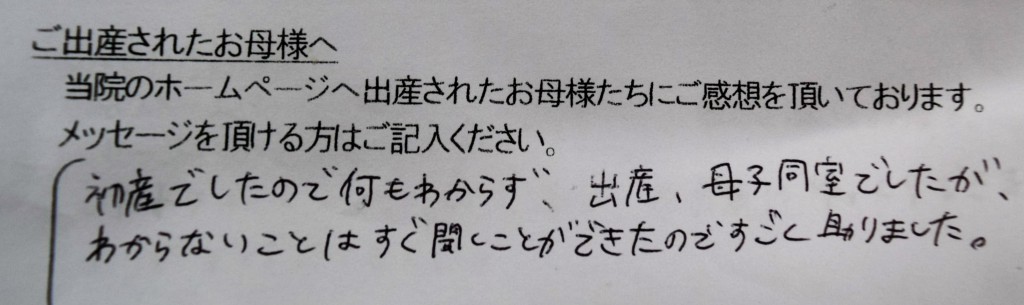 ご出産されたお母様へ
当院のホームページへ出産されたお母様たちにご感想を頂いております。
メッセージを頂ける方はご記入ください。
初産でしたので何もわからず、出産、母子同室でしたが、
わからないことはすぐ聞くことができたのですごく助りました。